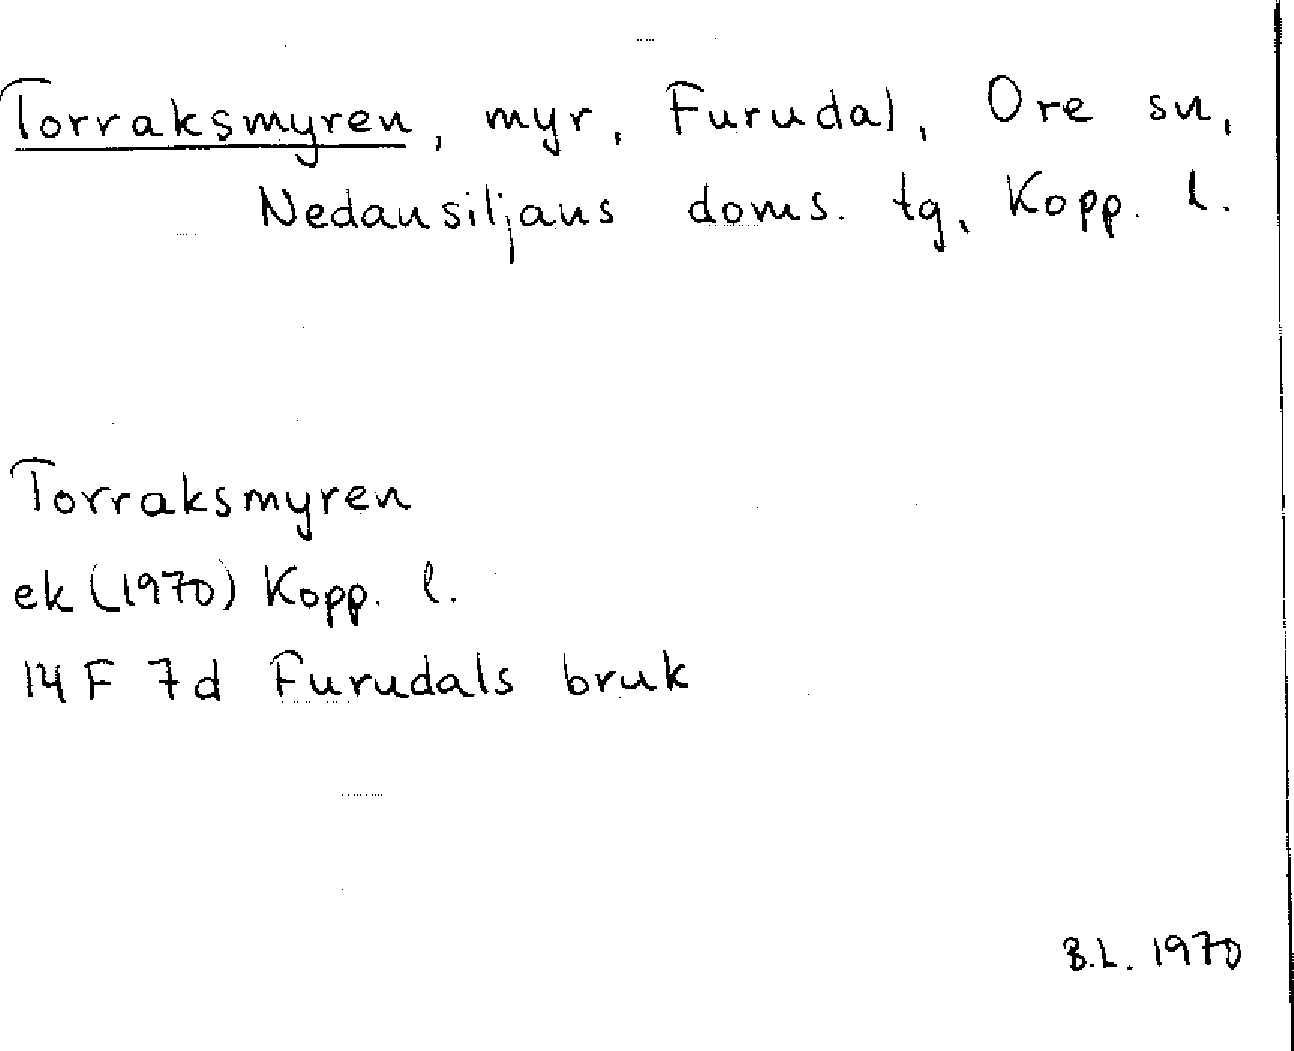 Torraksmyren, myr, Furudal, Ore sn,
Nedansiljans doms. tg, Kopp. l.
Torraksmyren
ek (1970) Kopp. l.
14 F 7d Furudals bruk
B.L. 1970